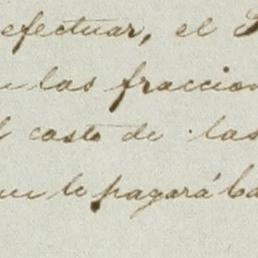 efectuar, el
las fraccion
costo de las
le pagará